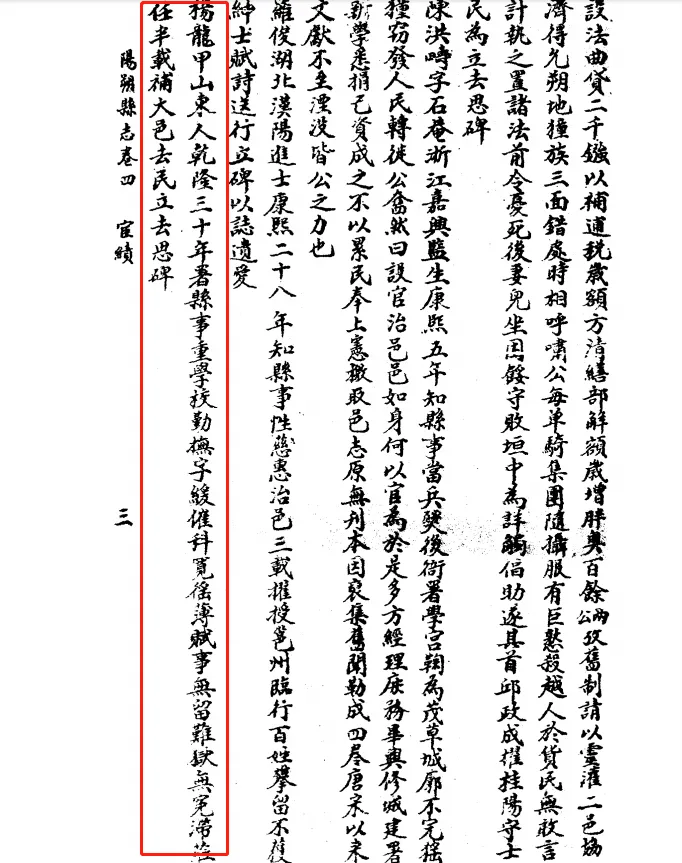 設法曲貸二千鏹以補逋稅歲額方清繕部解額歲增胖奥百餘公攷舊制請以靈灌二邑協
濟得允朔地獞族三面錯處時相呼嘯公每单騎集團隨攝服有巨憝殺越人於貨民無敢言
計執之置諸法前令憂死後妻兒坐困餒守敗垣中為詳觸偪助遂其首邱政成擢桂陽守士
民為立去思碑
陳洪疇字石菴浙江嘉興監生康熙五年知縣事當兵燹後衙署學宮鞠為茂草城廓不完猺
獞窃發人民轉徙公奮然曰設官治邑邑如身何以官為於是多方經理庶務畢興修城建署
新學悉捐己資成之不以累民奉上憲檄取邑志原無刋本因裒集舊聞勒成四卷唐宋以来
文獻不至湮没皆公之力也
羅俊湖北漢陽進士康熙二十八年知縣事性慈惠治邑三載擢授邕州臨行百姓攀留不獲
紳士賦詩送行立碑以誌遺愛
楊龍甲山東人乾隆三十年署縣事重學校勤撫字緩催科寛徭薄賦事無留難獄無冤滯蒞
任半載補大邑去民立去思碑
陽朔縣志卷四 宦績 三